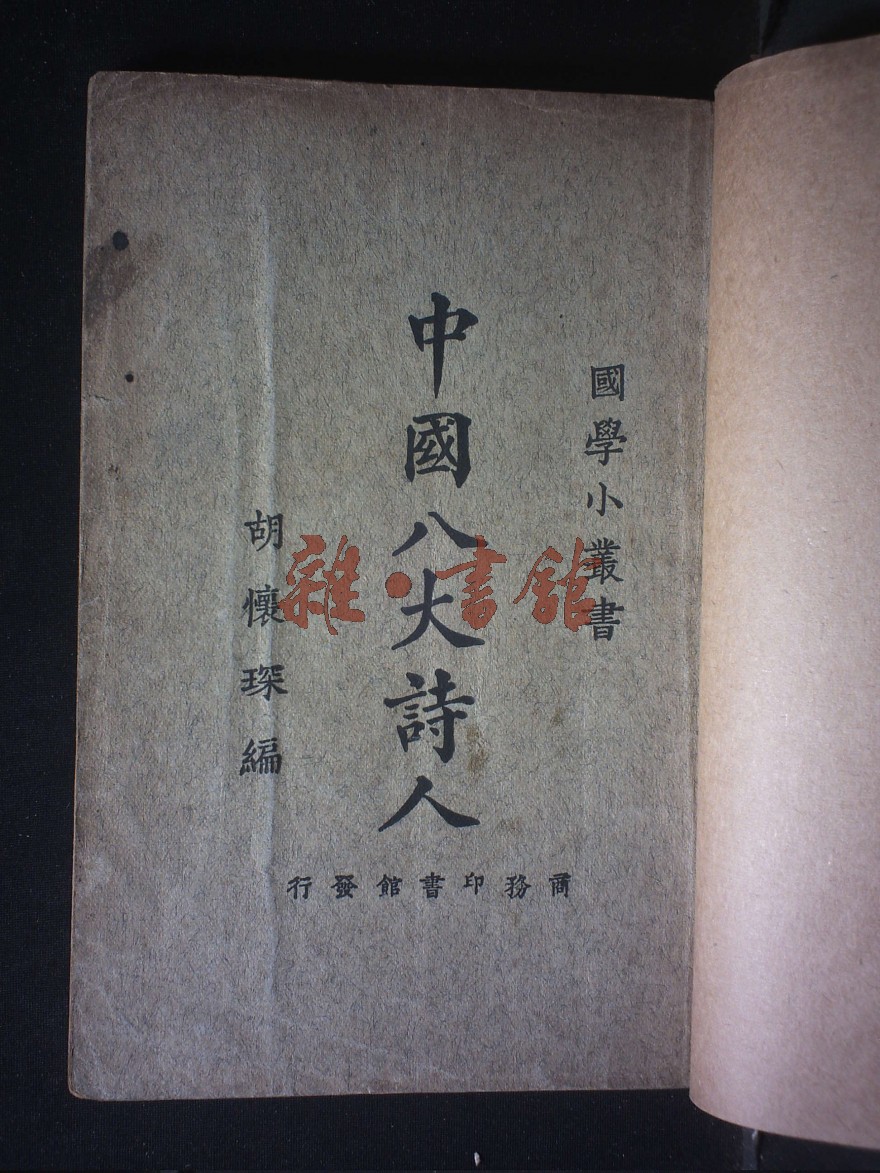 國學小叢書
中國八大詩人
胡懷琛編
商務印書館發行
雜·書館